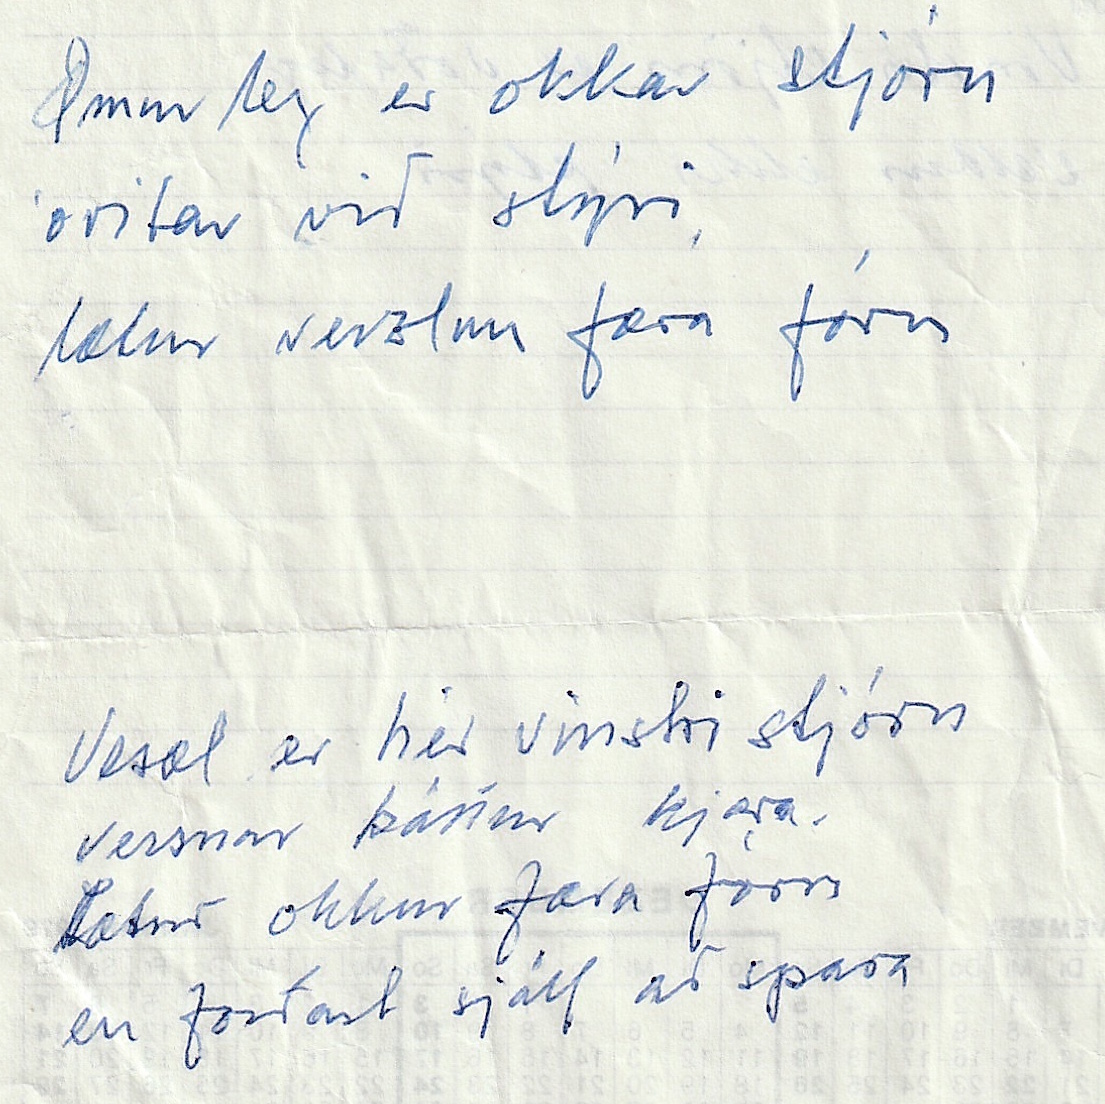 Ömurleg er okkar stjórn
óvitar við stýri,
lætur verzlun færa fórn
Vesæl er hér vinstri stjórn
versnar háttur kjara.
Lætur okkur færa fórn
en forðast sjálf að spara